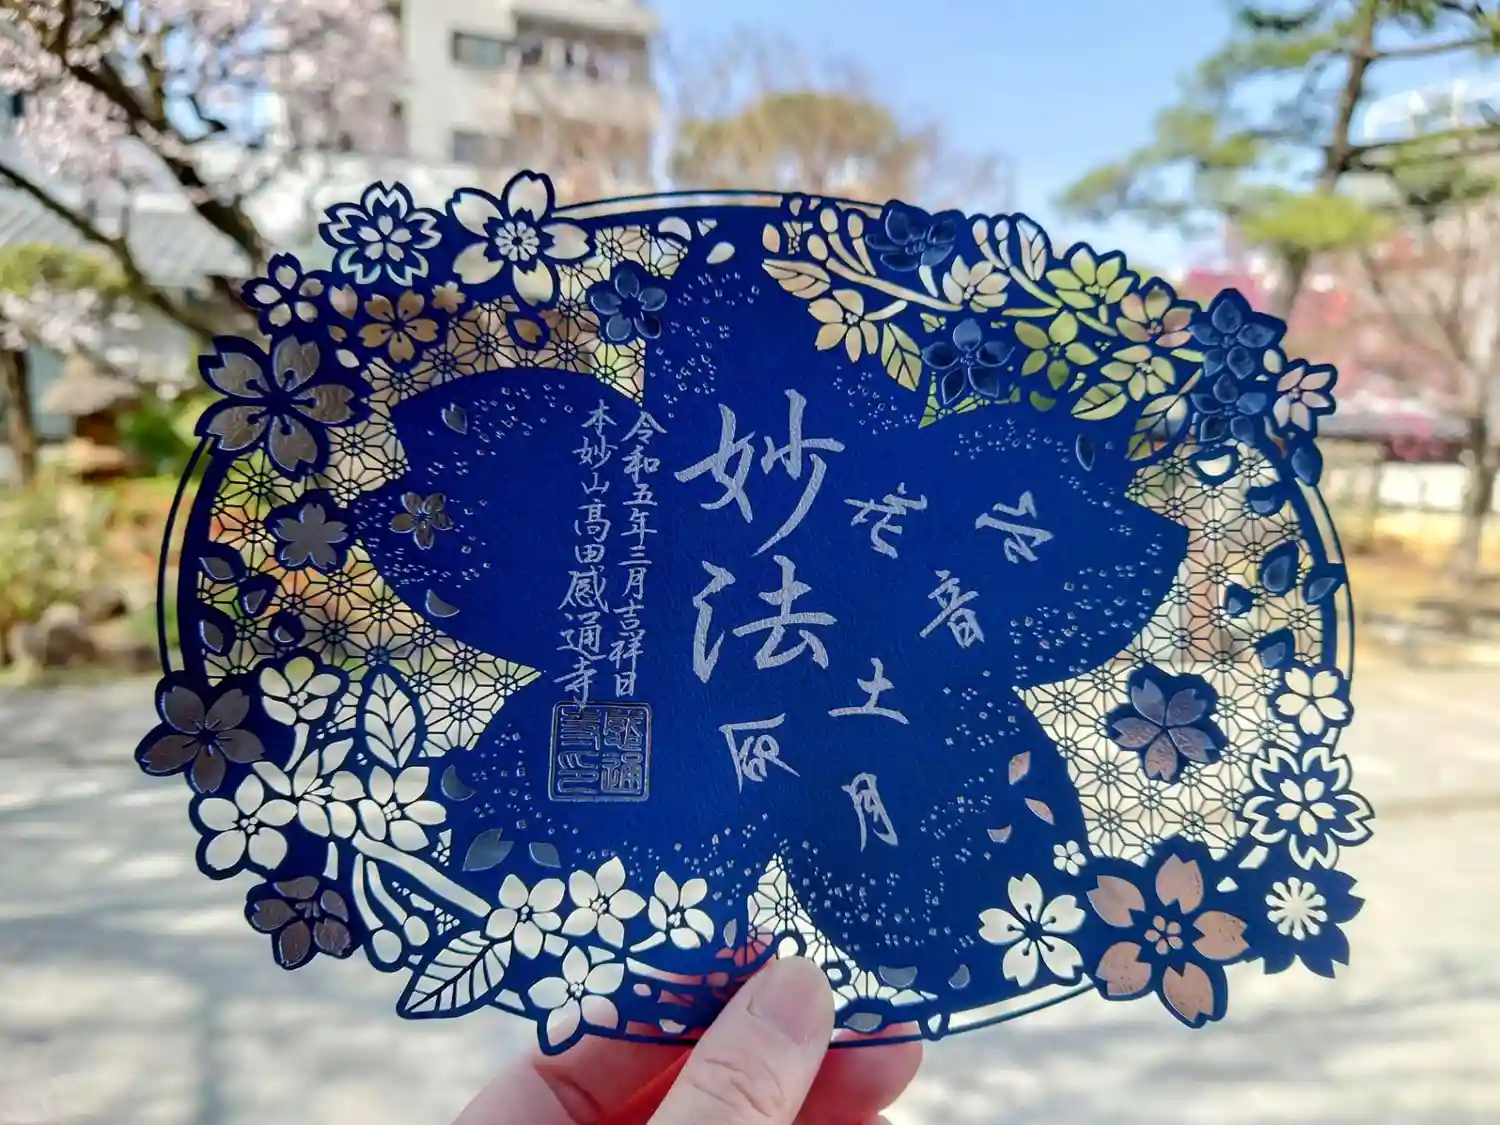 音
土
月
妙法
令和五年三月吉祥日
本妙山高田感通寺
感通寺印